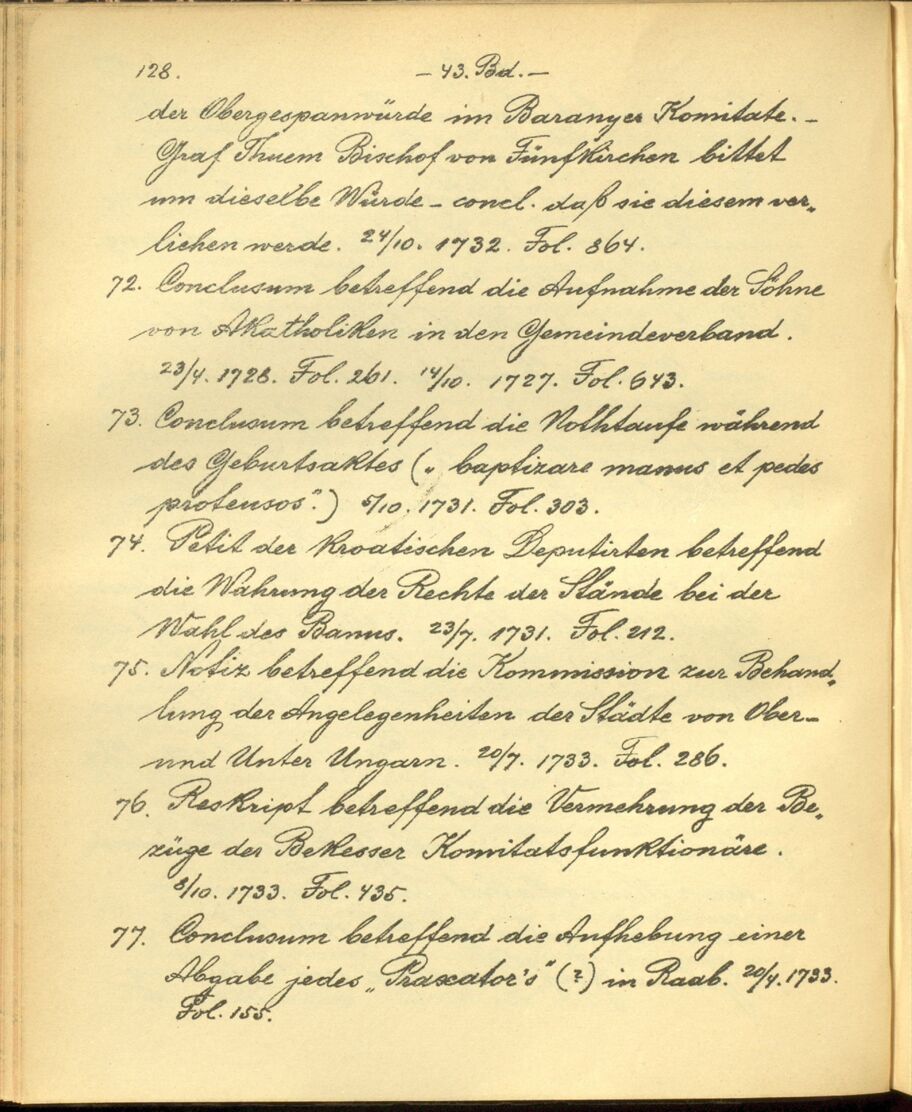 128. – 43. Bd. –
der Obergespanwürde im Baranyer Komitate. –
Graf Thuem Bischof von Fünfkirchen bittet
um dieselbe Würde – concl. daß sie diesem ver„
liehen werde. 24/10. 1732. Fol. 864.
72. Conclusum betreffend die Aufnahme der Söhne
von Akatholiken in den Gemeindeverband.
23/4. 1728. Fol. 261. 14/10. 1727. Fol. 643.
73. Conclusum betreffend die Nothtaufe während
des Geburtsaktes („ baptizare manus et pedes
protensos“.) 5/10. 1731. Fol. 303.
74. Petit der kroatischen Deputirten betreffend
die Wahrung der Rechte der Stände bei der
Wahl des Banus. 23/7. 1731. Fol. 212.
75. Notiz betreffend die Kommission zur Behand„
lung der Angelegenheiten der Städte von Ober–
und Unter Ungarn. 20/7. 1733. Fol. 286.
76. Reskript betreffend die Vermehrung der Be„
züge der Bekesser Komitatsfunktionäre.
8/10. 1733. Fol. 435.
77. Conclusum betreffend die Aufhebung einer
Abgabe jedes „Prascator's“ (?) in Raab. 20/4. 1733.
Fol. 155.